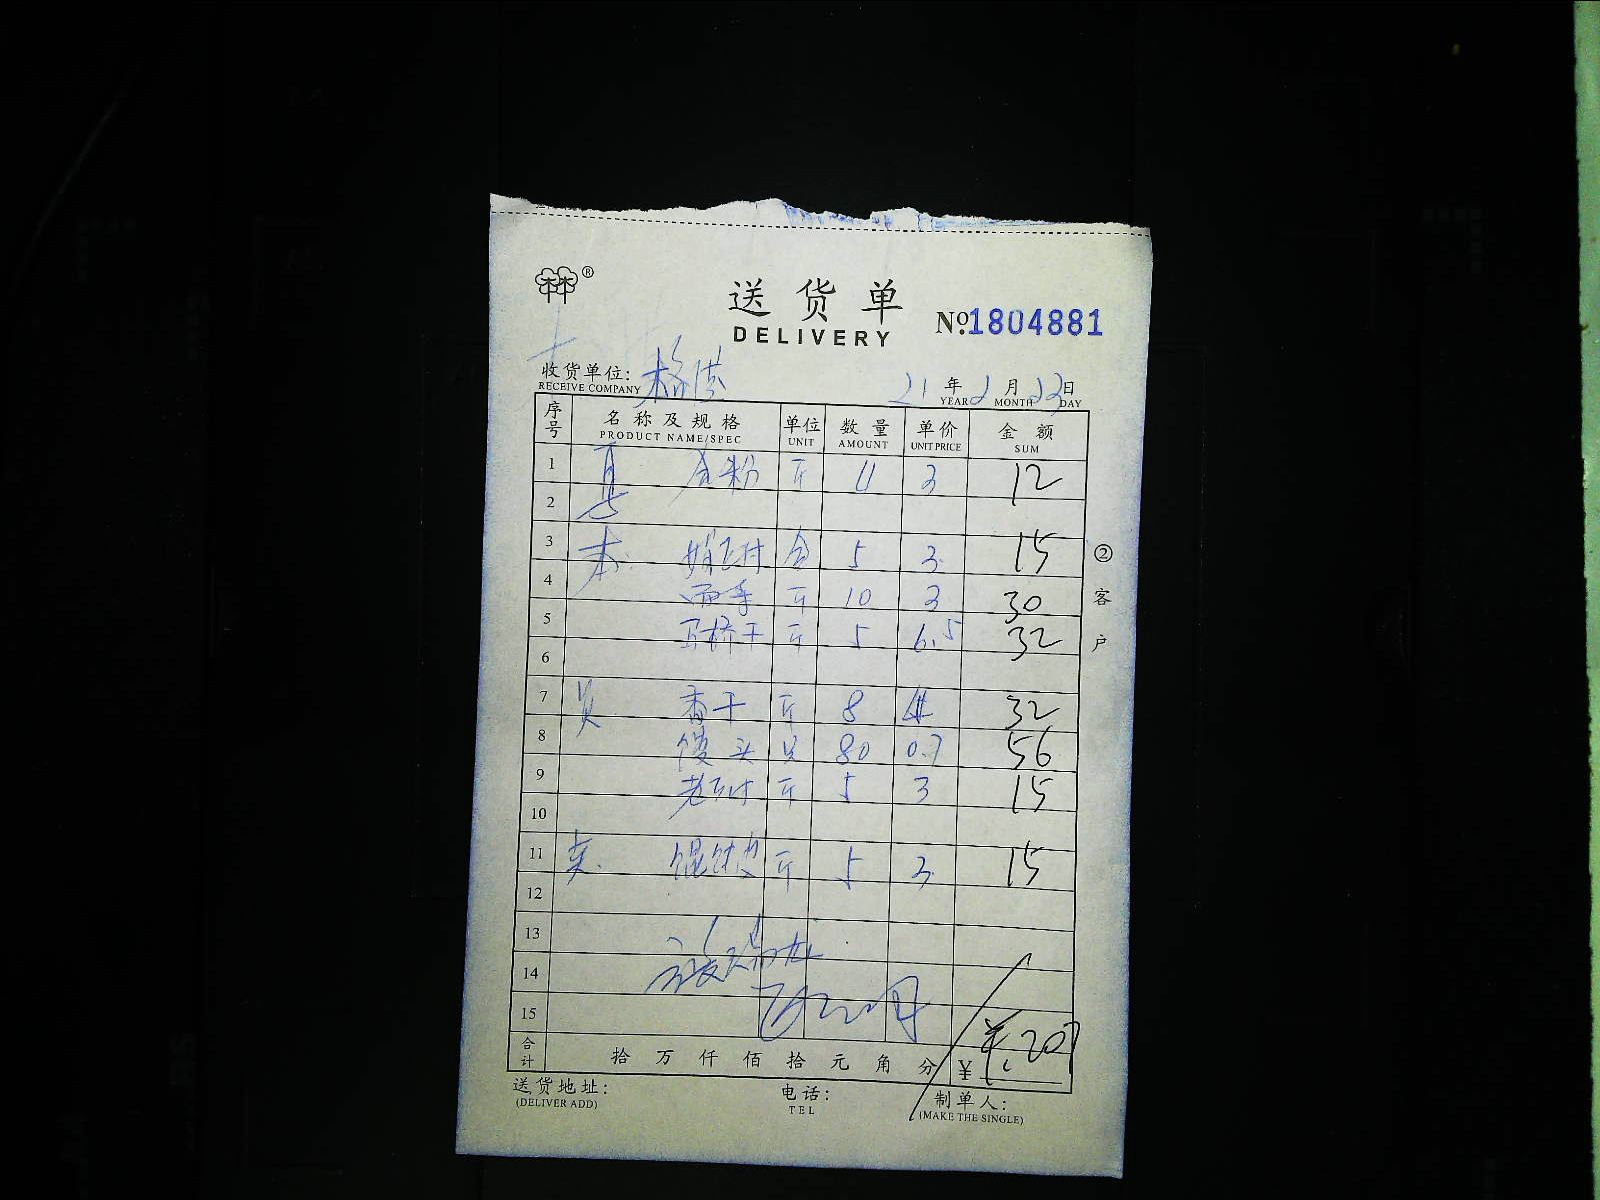 林®
送货单
DELIVERY
№1804881
收货单位:
RECEIVE COMPANY
21年2月23日
YEAR MONTH DAY
序号 名称及规格 单位 数量 单价 金额
PRODUCT NAME/SPEC UNIT AMOUNT UNIT PRICE SUM
1 斤 4 3 12
2
3 本 5 3 15
4 斤 10 3 30
5 斤 5 6.5 32
6
7 香干 斤 8 4 32
8 馒头 只 80 0.7 56
9 斤 5 3 15
10
11 馄饨皮 斤 5 3 15
12
13
14
15
合计 拾万仟佰拾元角分 ¥ ¥:207
送货地址:
(DELIVER ADD)
电话:
TEL
制单人:
(MAKE THE SINGLE)
②客户